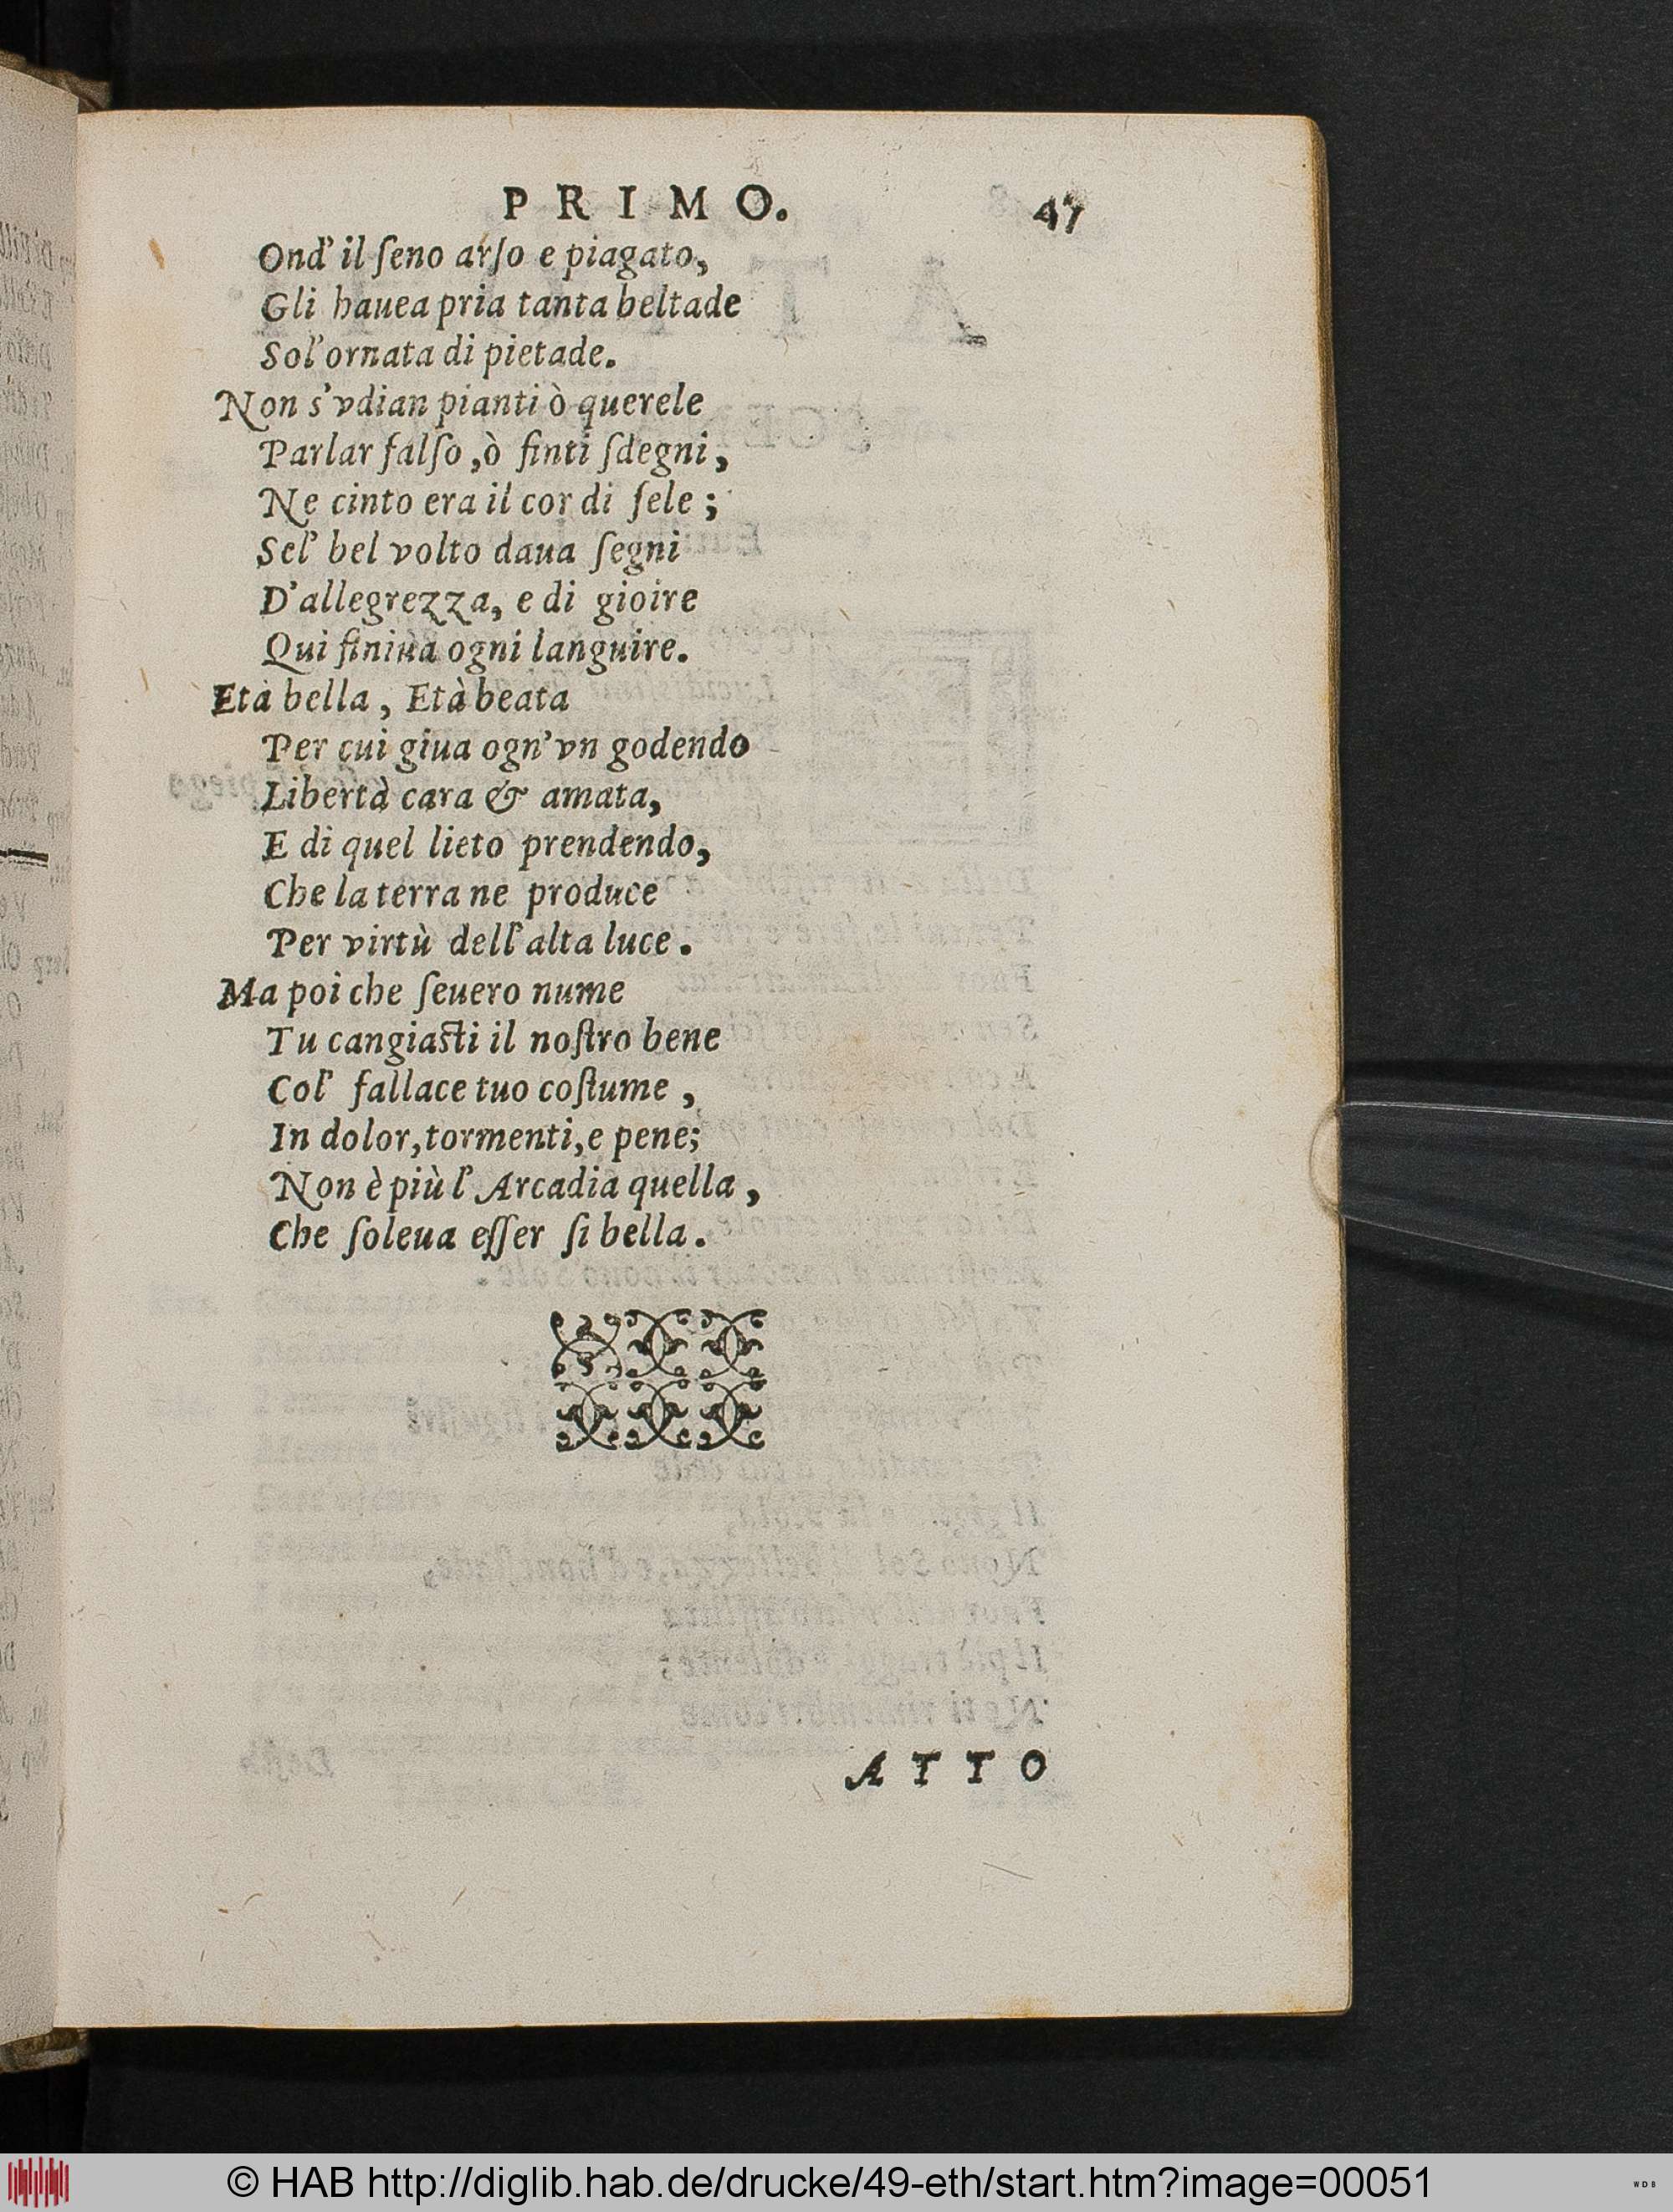 PRIMO. 47
Ond' il ſeno arſo e piagato,
Gli hauea pria tanta beltade
Sol' ornata di pietade.
Non s'vdian pianti ò querele
Parlar falſo, ò finti ſdegni,
Ne cinto era il cor di ſele;
Sel' bel volto daua ſegni
D'allegrezza, e di gioire
Qui finiua ogni languire.
Età bella, Età beata
Per cui giua ogn'vn godendo
Libertà cara & amata,
E di quel lieto prendendo,
Che la terra ne produce
Per virtù dell' alta luce.
Ma poi che ſeuero nume
Tu cangiaſti il noſtro bene
Col' fallace tuo coſtume,
In dolor, tormenti, e pene;
Non è più l' Arcadia quella,
Che ſoleua eſſer ſi bella.
ATTO
© HAB http://diglib.hab.de/drucke/49-eth/start.htm?image=00051
WDB